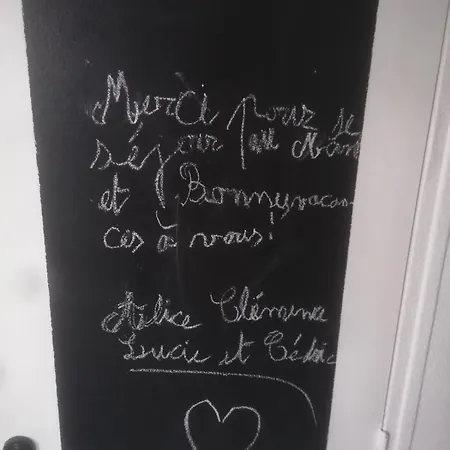 Merci pour ce
séjour au Mans
et Bonnes vacan-
ces à vous!
Atélice Clémence
Lucie et Cédric